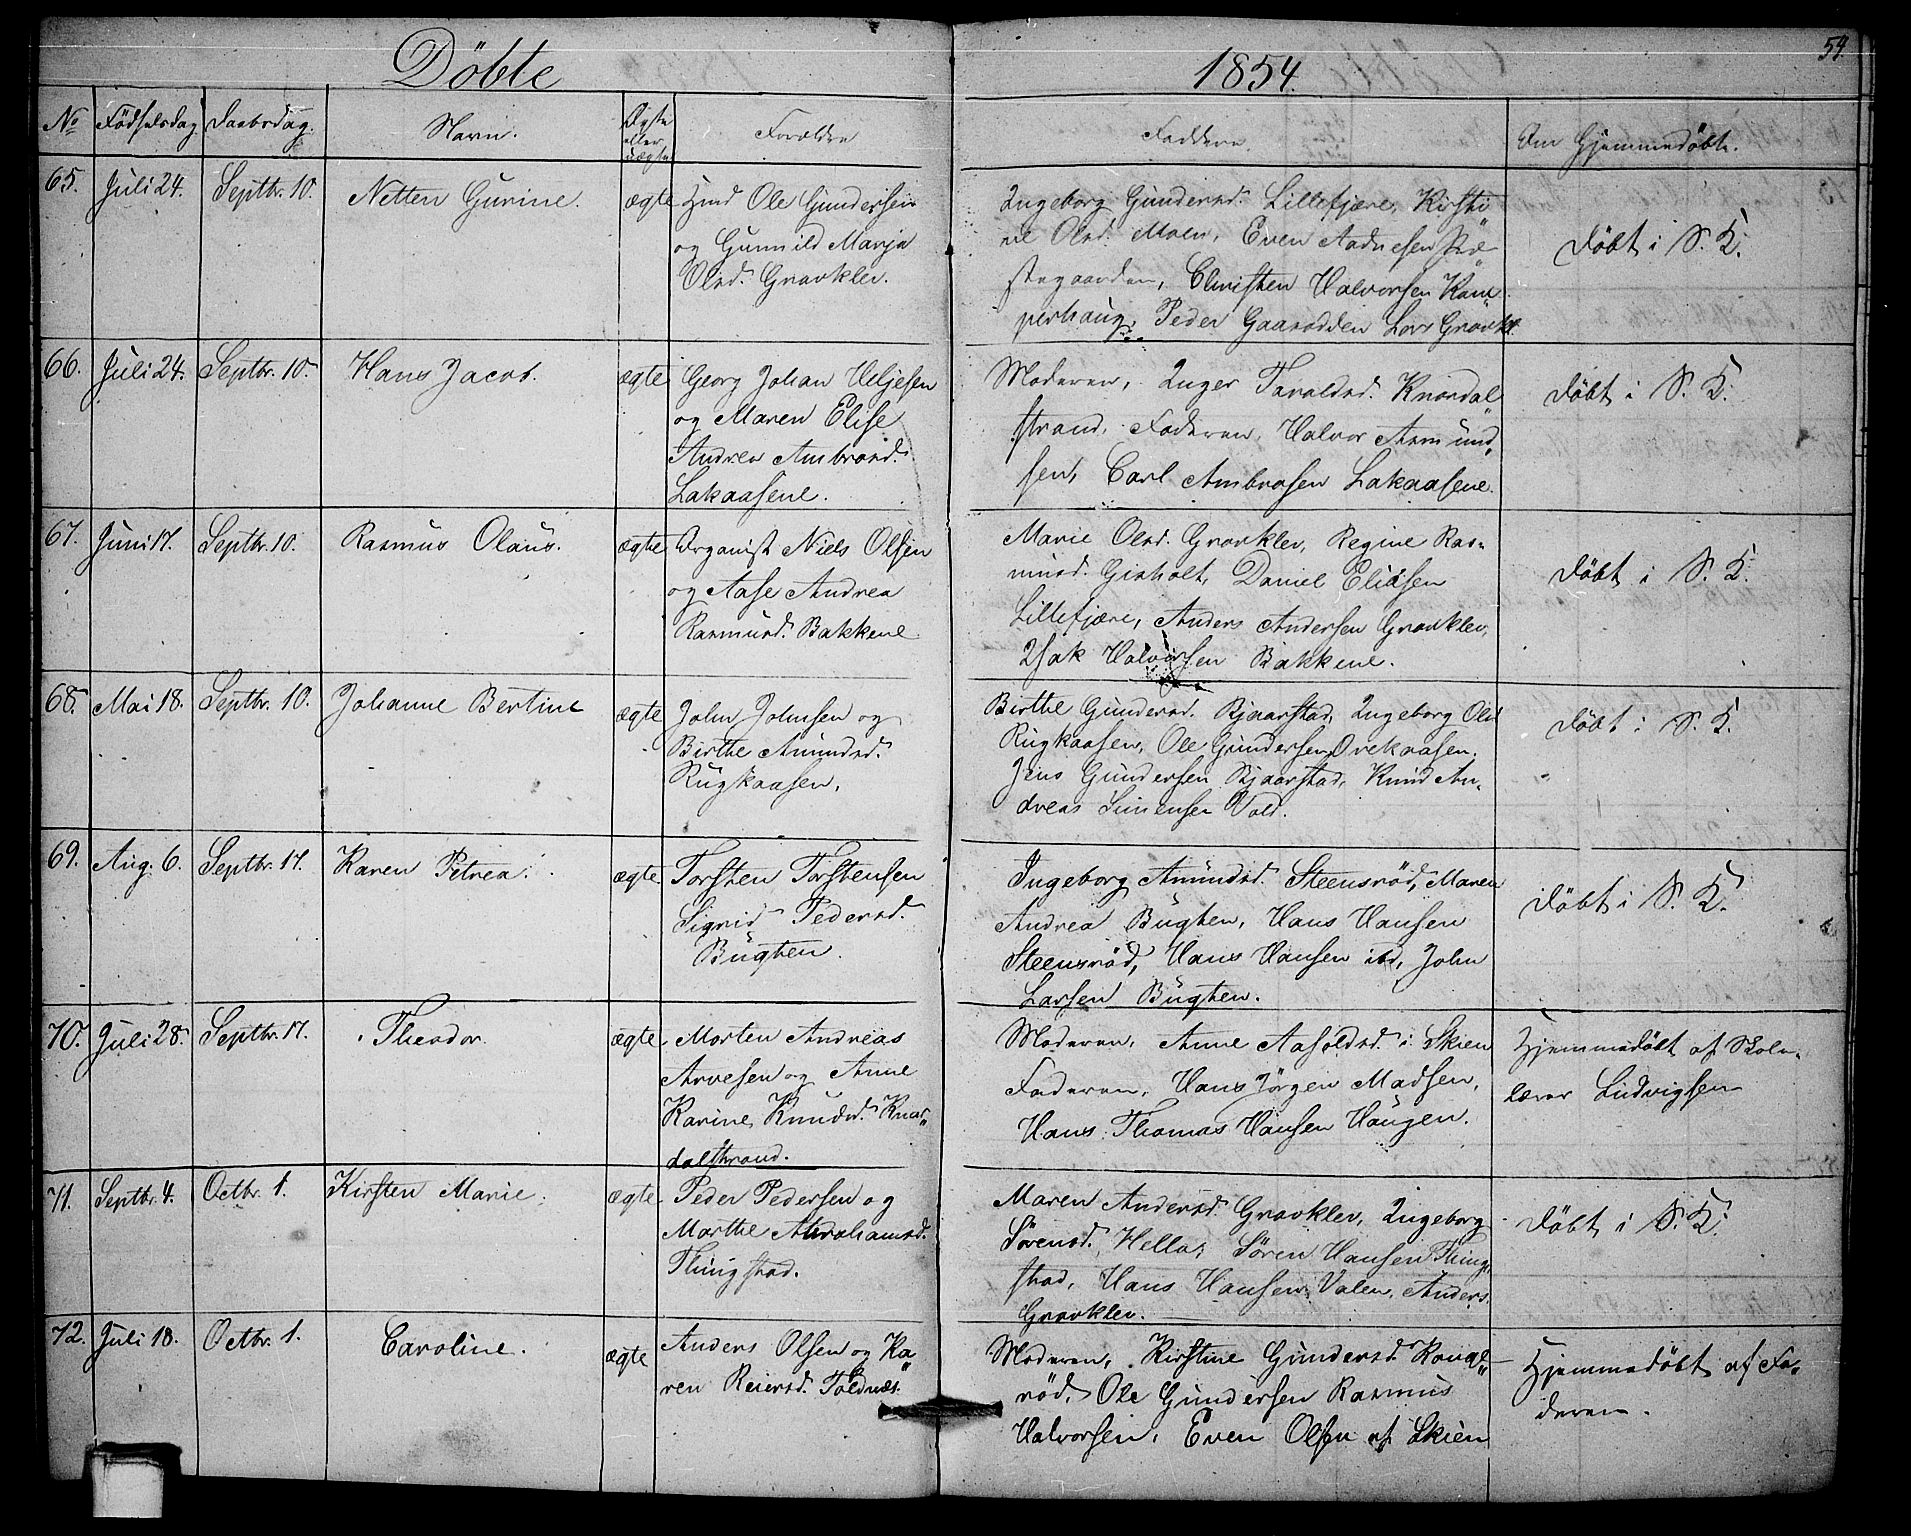 Döbte
1854.
54
No Födselsdag Daabsdag. Navn. Ægte eller uægte Forældre Faddere. Om Hjemmedöbt.
65. Juli 24. Septbr. 10. Netten Gurine. ægte
Ole Gundersen
og Gunnild Marja
Olsd. Gravklev.
Ingeborg Gundersd. Lillefjære, Kirsti
ne Olsd. Moen, Even Aadnesen Præ
stegaarden, Christen Halvorsen Kam
perhaug, Peder Gaasodden Lars Gravkl.
Döbt i S. K.
66. Juli 24. Septbr. 10. Hans Jacob. ægte
Georg Johan Veljesen
og Maren Elise
Andrea Ambrosd.
Lakaasene.
Moderen, Inger Taraldsd. Knardal
strand, Faderen, Halvor Asmund
sen, Carl Ambrosen Lakaasene.
Döbt i S. K.
67. Juni 17. Septbr. 10. Rasmus Olaus. ægte
Organist Niels Olsen
og Aase Andrea
Rasmusd. Bakkene
Marie Olsd. Gravklev, Regine Ras-
musd. Gisholt, Daniel Eliasen
Lillefjære, Anders Andersen Gravklev,
Isak Halvorsen Bakkene.
Döbt i S. K.
68. Mai 18. Septbr. 10. Johanne Bertine ægte
John Johnsen og
Birthe Amundsd.
Rugkaasen.
Birthe Gundersd. Bjaarstad, Ingeborg Olsd
Rugkaasen, Ole Gundersen Ovekaasen.
Jens Gundersen Bjaarstad, Knud An-
dreas Simensen Vold.
Döbt i S. K.
69. Aug. 6. Septbr. 17. Karen Petrea. ægte
Torsten Torstensen
Sigrid Pedersd.
Bugten.
Ingeborg Amundsd. Steensröd, Maren
Andrea Bugten, Hans Hansen
Steensröd, Hans Hansen ibd, John
Larsen Bugten.
Döbt i S. K.
70. Juli 28. Septbr. 17. Theodor. ægte
Morten Andreas
Arvesen og Anne
Karine Knudsd. Knar-
dalstrand.
Moderen, Anne Aasoldsd. i Skien
Faderen, Hans Jörgen Madsen,
Hans Thomas Hansen Haugen.
Hjemmedöbt af Skole-
lærer Ludvigsen
71. Septbr. 4. Octbr. 1. Kirsten Marie. ægte
Peder Pedersen og
Marthe Abrahamsd.
Thingstad.
Maren Andersd. Gravklev, Ingeborg
Sörensd. Hella, Sören Hansen Thing
stad, Hans Hansen Valen, Anders
Gravklev.
Döbt i S. K.
72. Juli 18. Octbr. 1. Caroline. ægte
Anders Olsen og Ka
ren Reiersd. Toldnæs.
Moderen, Kirstine Gundersd.
röd, Ole Gundersen Rasmus
Halvorsen, Even Olsen af Skien
Hjemmedöbt af Fa-
deren.